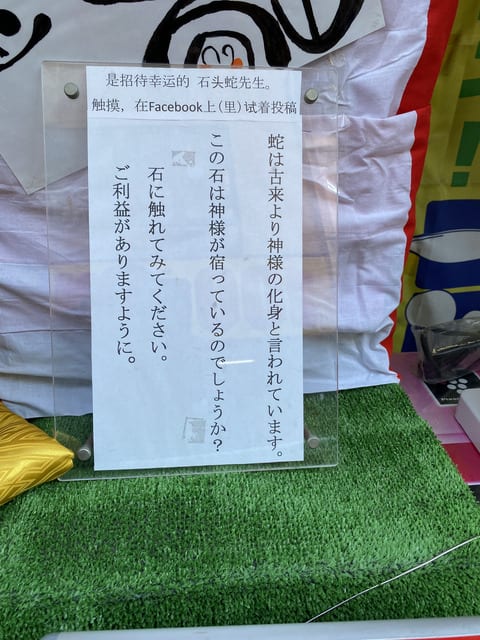 是招待幸运的 石头蛇先生。
触摸，在Facebook上(里)试着投稿
蛇は古来より神様の化身と言われています。
この石は神様が宿っているのでしょうか？
石に触れてみてください。
ご利益がありますように。